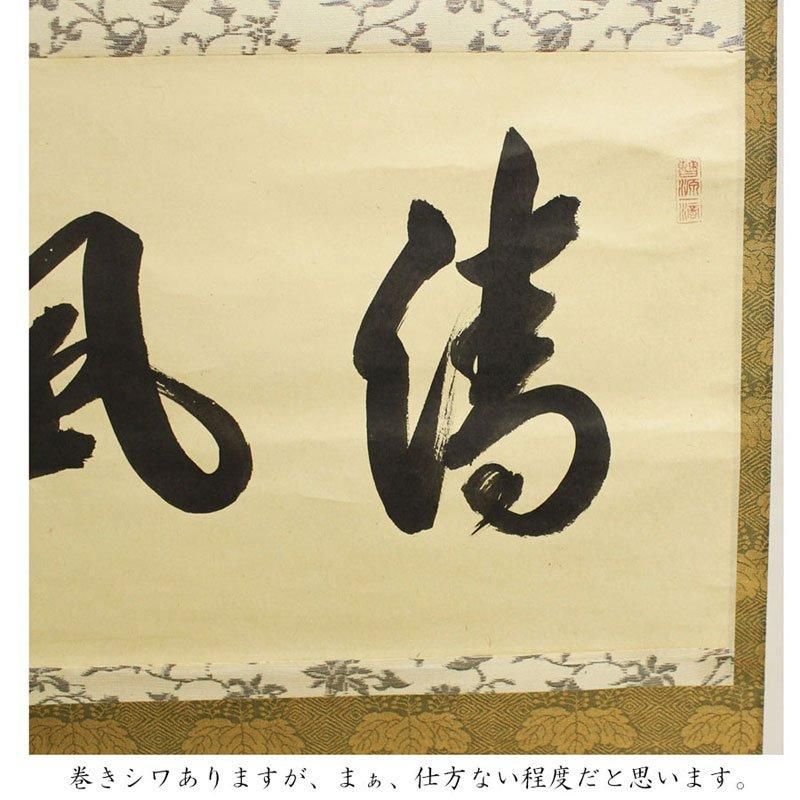 清風
曹源一滴
巻きシワありますが、まぁ、仕方ない程度だと思います。